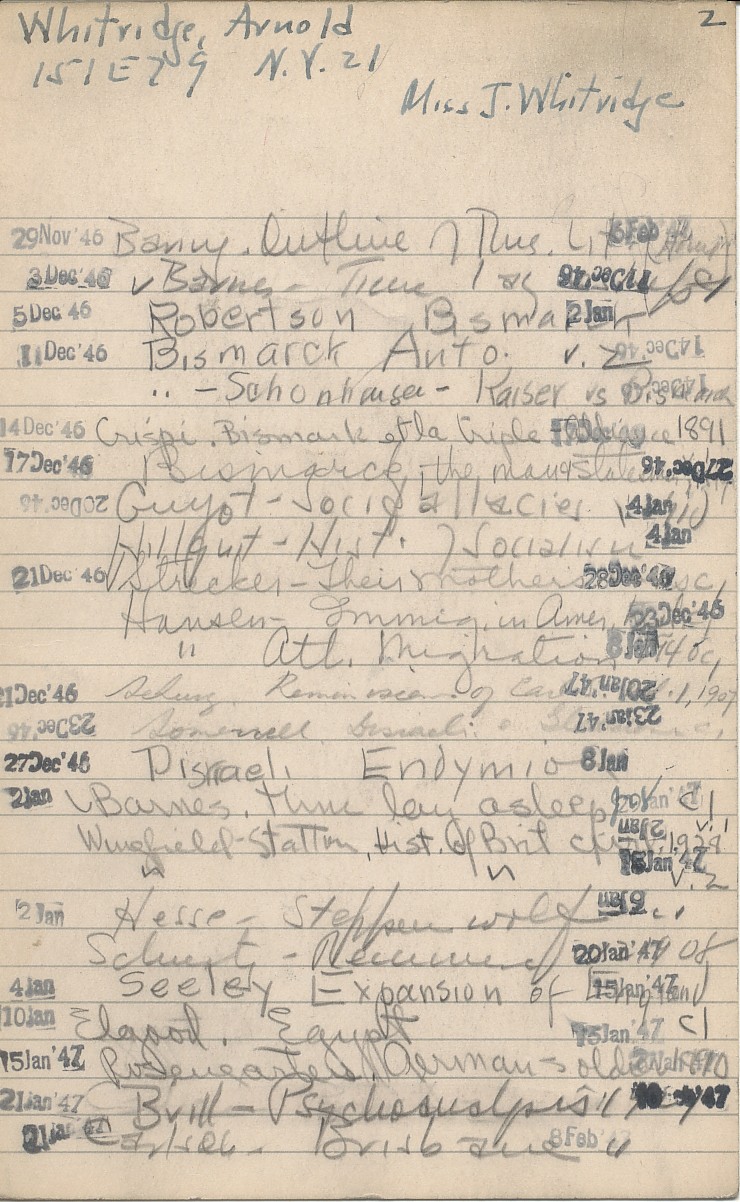 2
Whitridge, Arnold
151 E 79 N.Y. 21
Miss J. Whitridge
29 Nov '46 Outline of Rus. Lit 6 Feb
3 Dec '46 v Barnes - Time lay 17 Dec '46
5 Dec 46 Robertson Bismarck 2 Jan
11 Dec '46 Bismarck Auto. v. 2 14 Dec '46
" - Schonhausen - Kaiser vs Bismarck 14 Dec '46
14 Dec '46 Crispi. Bismark et la Triple 1891
17 Dec '46 Bismarck, the man & statesman 27 Dec '46
20 Dec '46 Guyot - Social Fallacies 4 Jan
Hillquit - Hist. of Socialism 4 Jan
21 Dec '46 Strecker - Their mothers 28 Dec '46
Hansen - Immig. in Amer. 23 Dec '46
" Atl. Migration 8 Jan
21 Dec '46 Schurz Reminiscen. of Carl 20 Jan '47 v.1, 1907
23 Dec '46 Somervell Disraeli & 23 Jan '47
27 Dec '46 Disraeli Endymion 8 Jan
2 Jan v Barnes. time lay asleep c1
Wingfield-Stratford, Hist. of Brit civ. 2 Jan v.1 1928
" " 15 Jan '47 v.2
2 Jan Hesse - Steppenwolf 6 Jan
Schurz - Reminis 20 Jan '47 08
4 Jan Seeley Expansion of England 15 Jan '47
10 Jan Elgood. Egypt 15 Jan '47 c1
15 Jan '47 Rosengarten, German soldier
21 Jan '47 Brill - Psychoanalysis '47
21 Jan '47 Brisbane 8 Feb '47